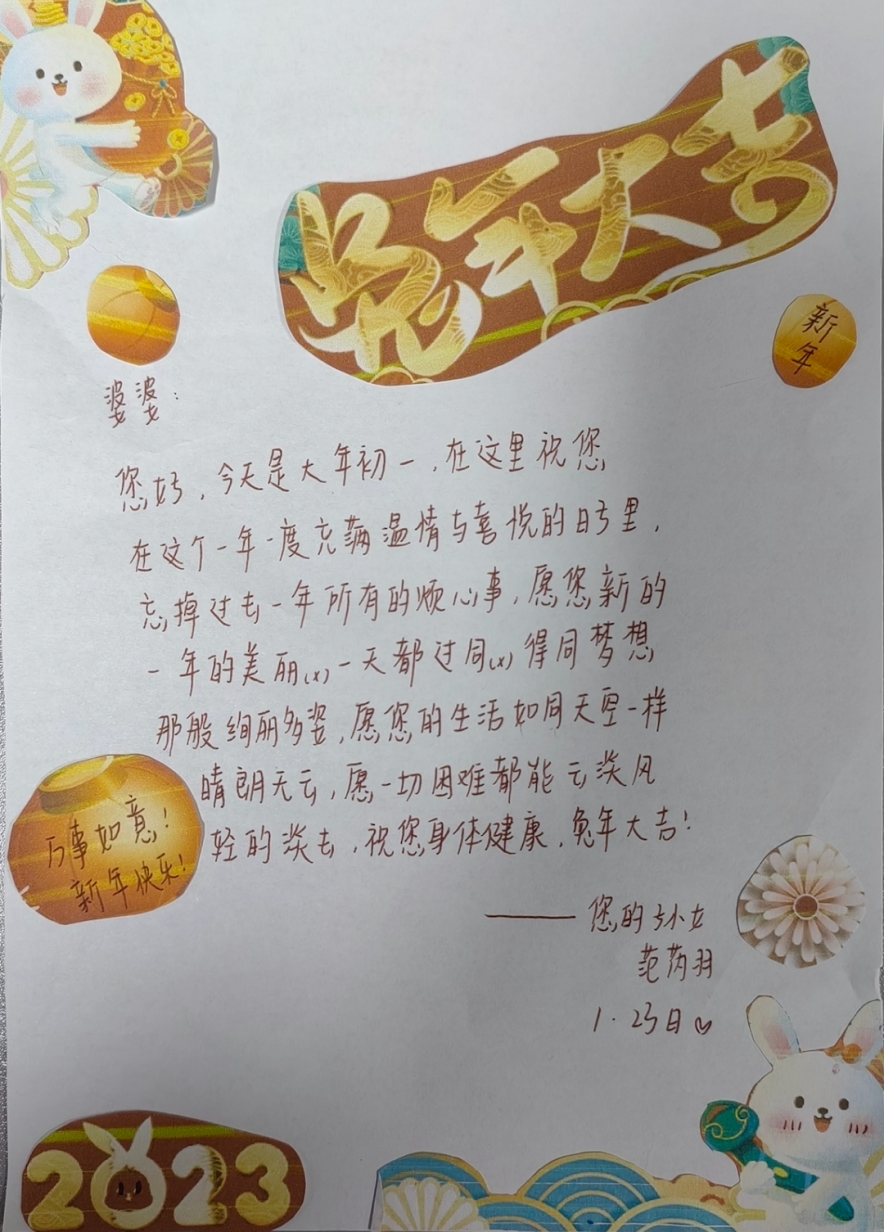 兔年大吉
新
年
婆婆：
您好，今天是大年初一，在这里祝您
在这个一年一度充满温情与喜悦的日子里，
忘掉过去一年所有的烦心事，愿您新的
一年的美丽(x)一天都过同(x)得同梦想
那般绚丽多姿，愿您的生活如同天空一样
晴朗无云，愿一切困难都能云淡风
轻的淡去，祝您身体健康，兔年大吉！
万事如意！
新年快乐！
——您的孙女
范苪羽
1·23日
2023